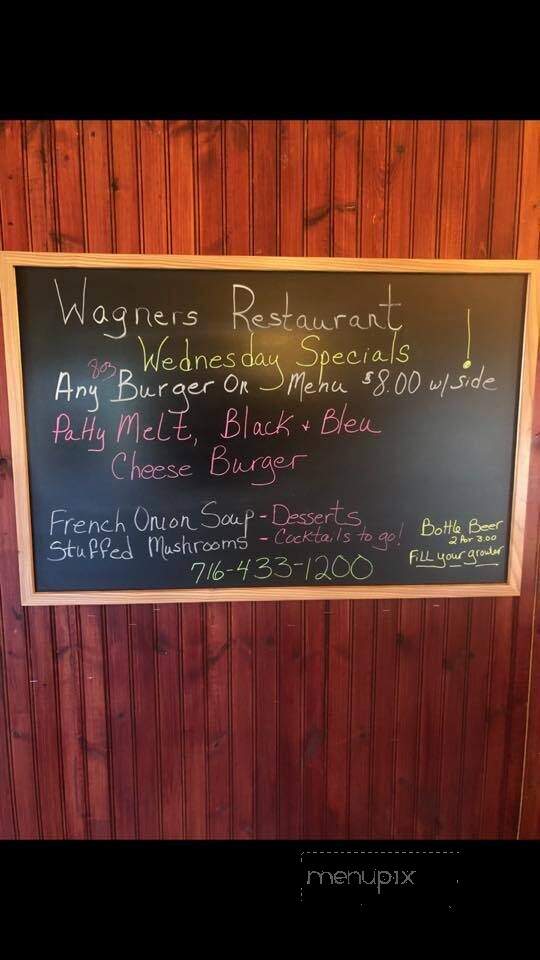 Wagners Restaurant
Wednesday Specials !
8oz
Any Burger On Menu $8.00 w/ side
Patty Melt, Black + Bleu
Cheese Burger
French Onion Soup - Desserts
Stuffed Mushrooms - Cocktails to go!
Bottle Beer
2 for 3.00
Fill your growler
716-433-1200
menupix